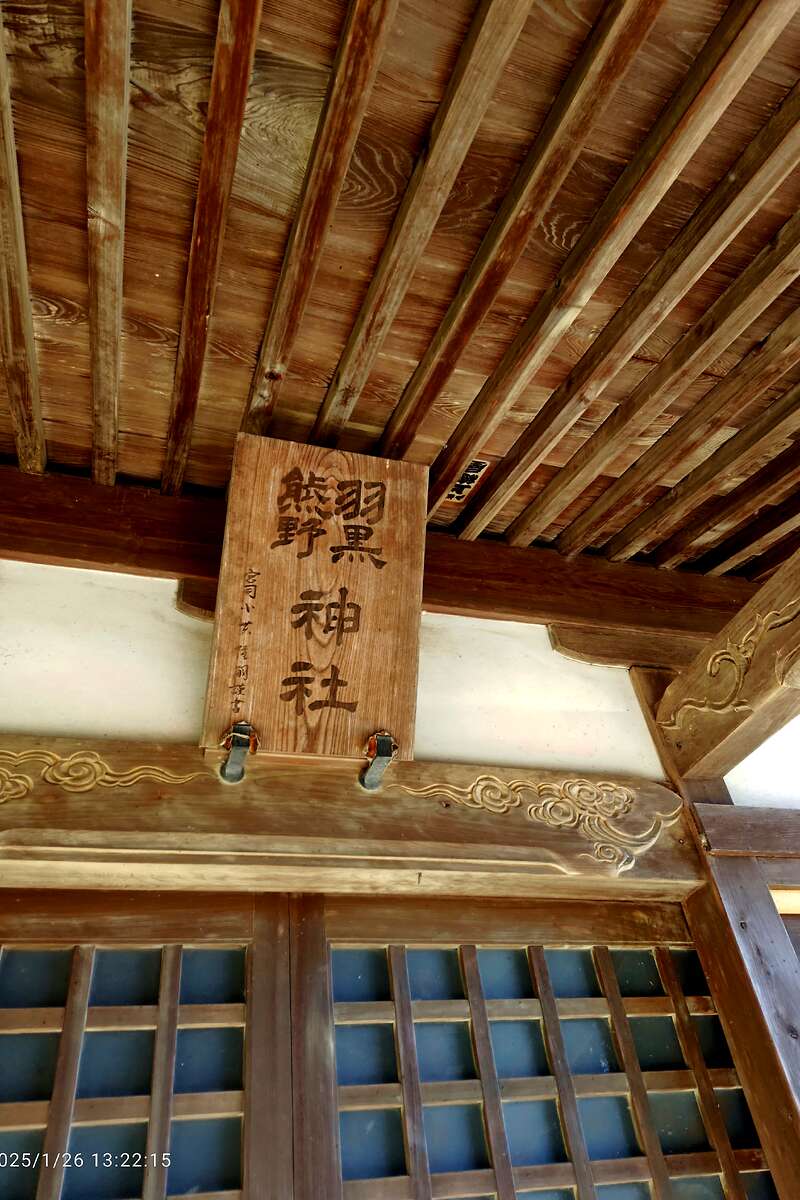 羽黒
熊野
神社
宮司小 謹書
025/1/26 13:22:15